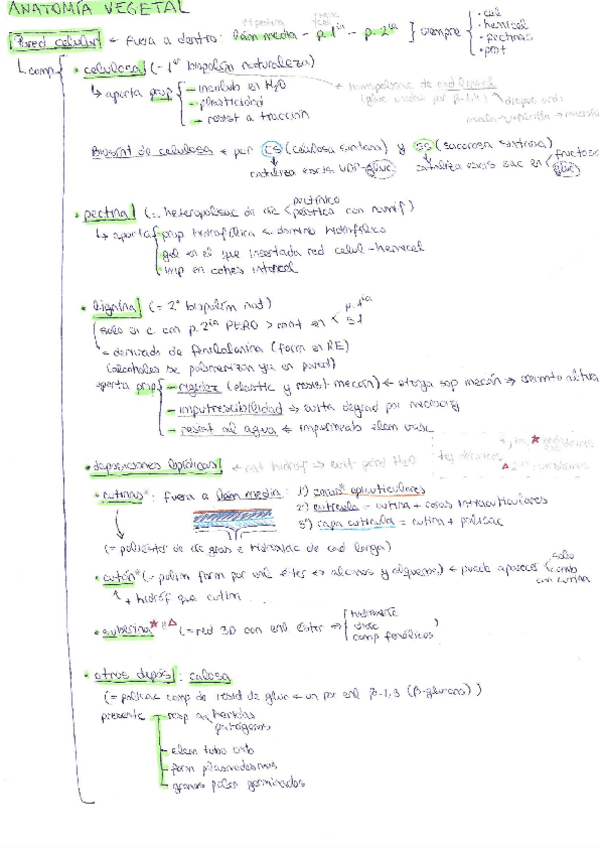 ANATOMÍA VEGETAL
Pared celular ← Fuera a dentro: lám media - p. 1ia - p. 2ia } siempre { · cel
· hemicel
· pectinas
· prot
comp { · celulosa (= 1er biopolím naturaleza)
↳ aporta prop { — insolub en H2O
— plasticidad
— resist a tracción
Biosint de celulosa ← por CS (celulosa sintasa) y SS (sacarosa sintasa)
cataliza escis UDP-gluc
cataliza escis sac en fructosa
gluc
· pectina (= heteropolisac de ác
péctico con ramif)
↳ aporta { · prop hidrofílica ← dominio hidrofílico
· gel en el que insertada red celul-hemicel
· imp en cohes intercel
· lignina (= 2º biopolím nat)
solo en c. con p. 2ia PERO > cant en < p. 1ia
— derivado de fenilalanina (form en RE)
(alcoholes se polimerizan ya en pared)
aporta prop { — rigidez (elastic y resist mecán) ← otorga sop mecán → crecimto altura
— imputrescibilidad → evita degrad por microorg
— resist al agua ← impermeab elem vasc
· deposiciones lipídicas ← nat hidróf → evit pérd H2O
· cutinas*: fuera a lám media: 1) ceras* epicuticulares
2) cutícula = cutina + ceras intracuticulares
3) capa cuticular = cutina + polisac
(= poliéster de ác gras e hidroxiác de cad larga)
· cután* (= polím form por enl éter ↔ alcanos y alquenos) ← puede aparecer < solo
comb
con cutina
↑ + hidróf que cutin
· suberina* (= red 3D con enl éster →
comp fenólicos)
· otros depós: calosa
(= polisac comp de resid de gluc ← un por enl β-1,3 (β-glucano))
presente — resp a < heridas
patógenos
— elem tubo crib
— form plasmodesmos
— granos polen germinados